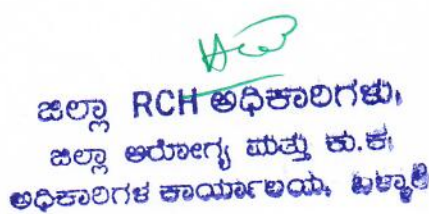 ಜಿಲ್ಲಾ RCH ಅಧಿಕಾರಿಗಳು,
ಜಿಲ್ಲಾ ಆರೋಗ್ಯ ಮತ್ತು ಕು.ಕ.
ಅಧಿಕಾರಿಗಳ ಕಾರ್ಯಾಲಯ, ಬಳ್ಳಾರಿ